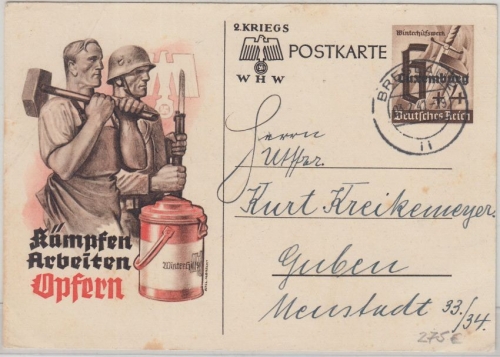 2. KRIEGS
WHW
POSTKARTE
Winterhilfswerk
6
Luxemburg
Deutsches Reich
Herrn
Kurt Kreikemeyer.
Guben
Neustadt 33./34.
Kämpfen
Arbeiten
Opfern
Winterhilfe
275 €